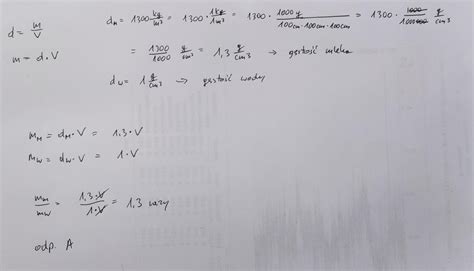 d = m/V
m = d · V
d_M = 1300 kg/m³ = 1300 · 1kg/1m³ = 1300 · 1000g/100cm·100cm·100cm = 1300 · 1000/1000000 g/cm³
= 1300/1000 g/cm³ = 1,3 g/cm³ → gęstość mleka
d_W = 1 g/cm³ → gęstość wody
m_M = d_M · V = 1,3 · V
m_W = d_W · V = 1 · V
m_M/m_W = 1,3·V/1·V = 1,3 razy
odp. A